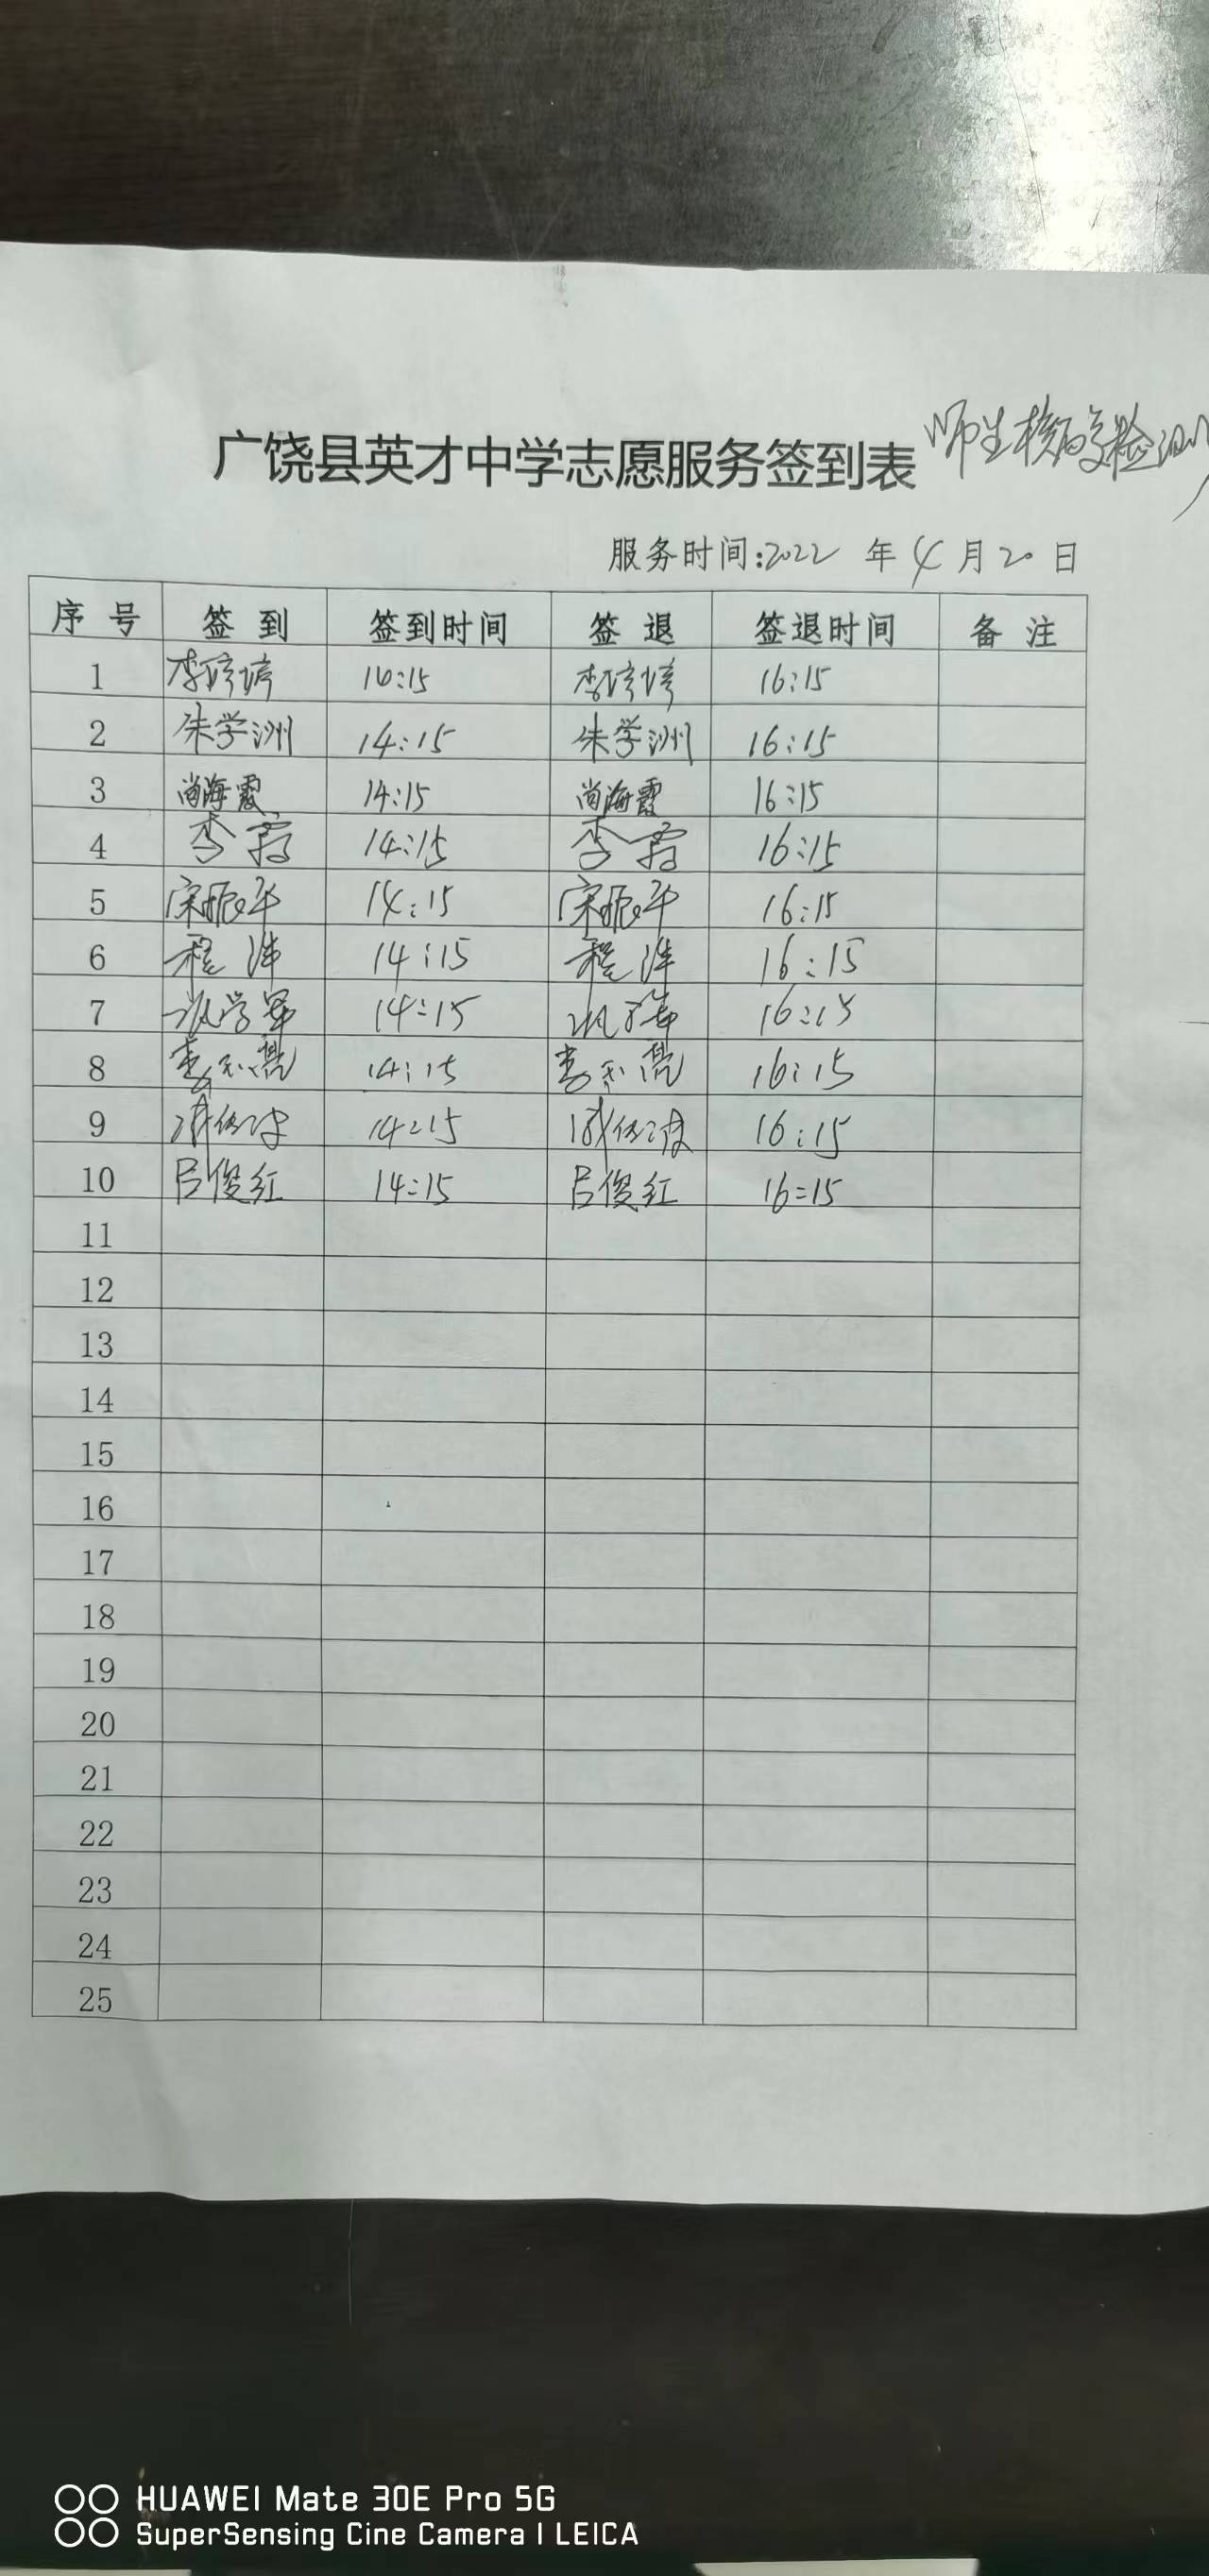 广饶县英才中学志愿服务签到表 师生核酸检测
服务时间:2022 年 4 月 20 日
序号 签到 签到时间 签退 签退时间 备注
1 李婷婷 14:15 李婷婷 16:15
2 朱学洲 14:15 朱学洲 16:15
3 尚海霞 14:15 尚海霞 16:15
4 李霞 14:15 李霞 16:15
5 宋振华 14:15 宋振华 16:15
6 程洋 14:15 程洋 16:15
7 14:15 16:15
8 李玉亮 14:15 李玉亮 16:15
9 14:15 16:15
10 吕俊红 14:15 吕俊红 16:15
11
12
13
14
15
16
17
18
19
20
21
22
23
24
25
HUAWEI Mate 30E Pro 5G
SuperSensing Cine Camera | LEICA